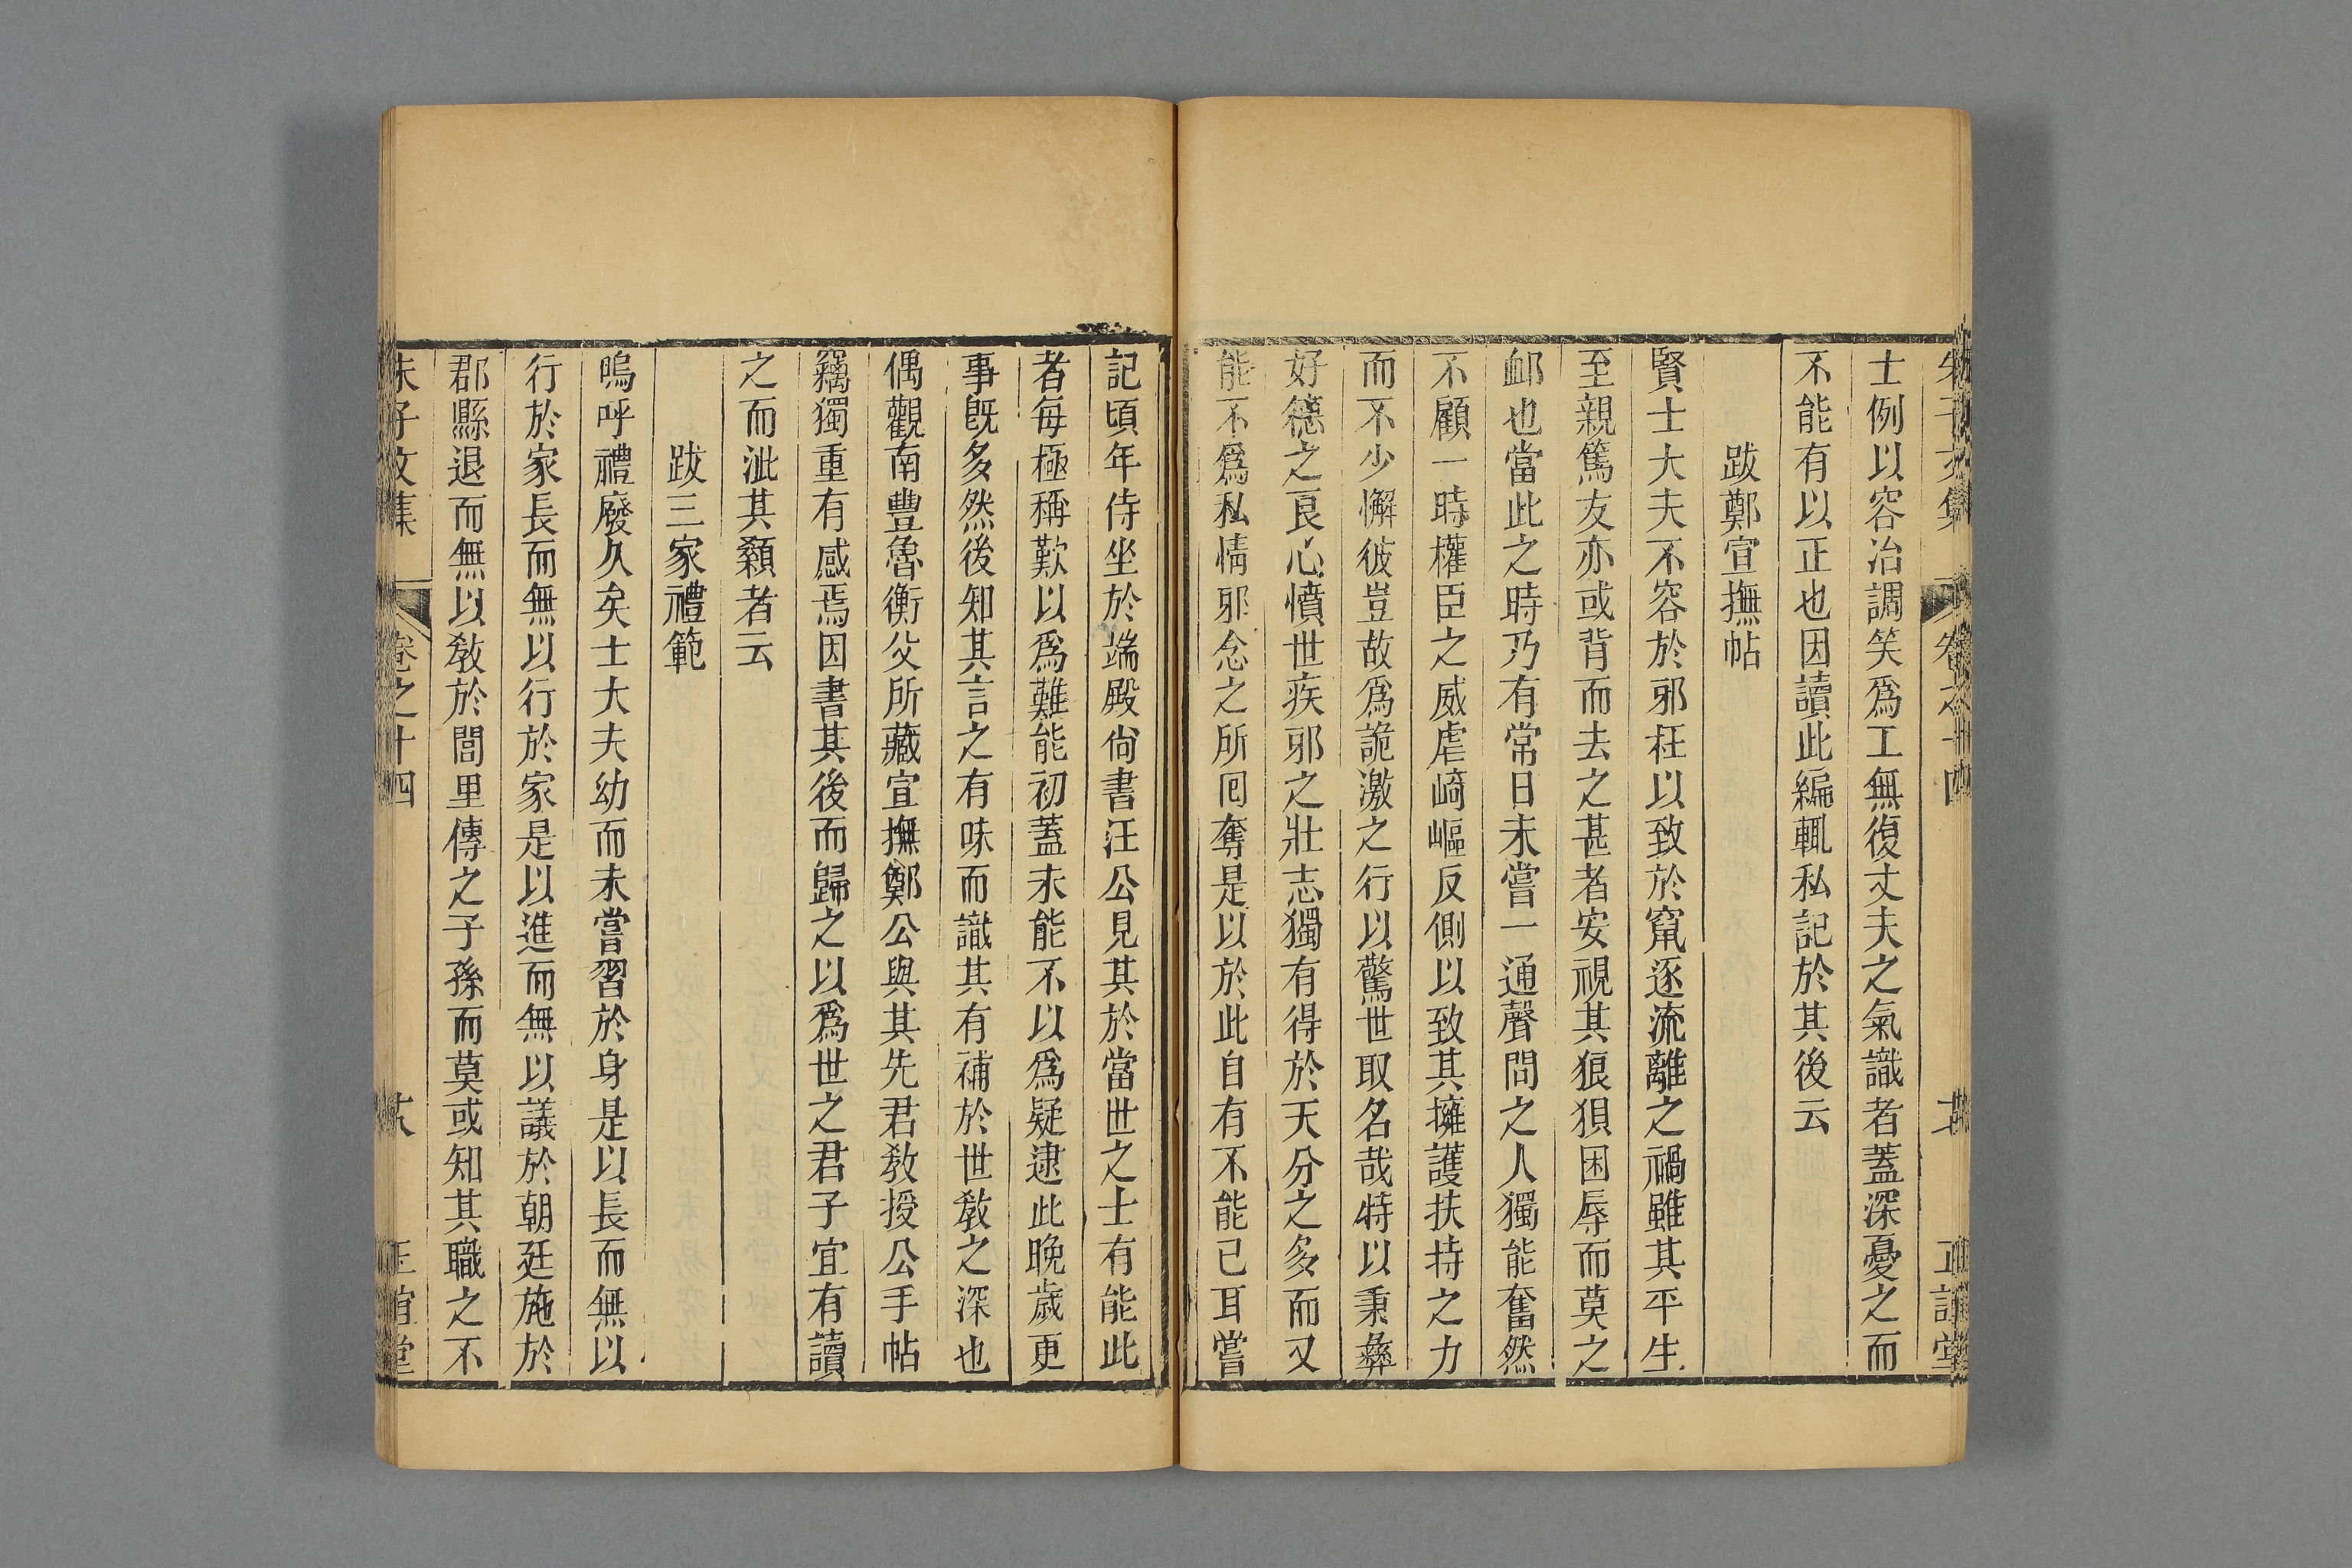 士例以容治調笑爲工無復丈夫之氣識者蓋深憂之而
不能有以正也因讀此編輒私記於其後云
跋鄭宣撫帖
賢士大夫不容於邪枉以致於竄逐流離之禍雖其平生
至親篤友亦或背而去之甚者安視其狼狽困辱而莫之
卹也當此之時乃有常日未嘗一通聲問之人獨能奮然
不顧一時權臣之威虐崎嶇反側以致其擁護扶持之力
而不少懈彼豈故爲詭激之行以驚世取名哉特以秉彝
好德之良心憤世疾邪之壯志獨有得於天分之多而又
能不爲私情邪念之所囘奪是以於此自有不能已耳嘗
記頃年侍坐於端殿尙書汪公見其於當世之士有能此
者每極稱歎以爲難能初蓋未能不以爲疑逮此晚歲更
事旣多然後知其言之有味而識其有補於世敎之深也
偶觀南豐魯衡父所藏宣撫鄭公與其先君敎授公手帖
竊獨重有感焉因書其後而歸之以爲世之君子宜有讀
之而泚其顙者云
跋三家禮範
嗚呼禮廢久矣士大夫幼而未嘗習於身是以長而無以
行於家長而無以行於家是以進而無以議於朝廷施於
郡縣退而無以敎於閭里傳之子孫而莫或知其職之不
朱子文集 卷之十四